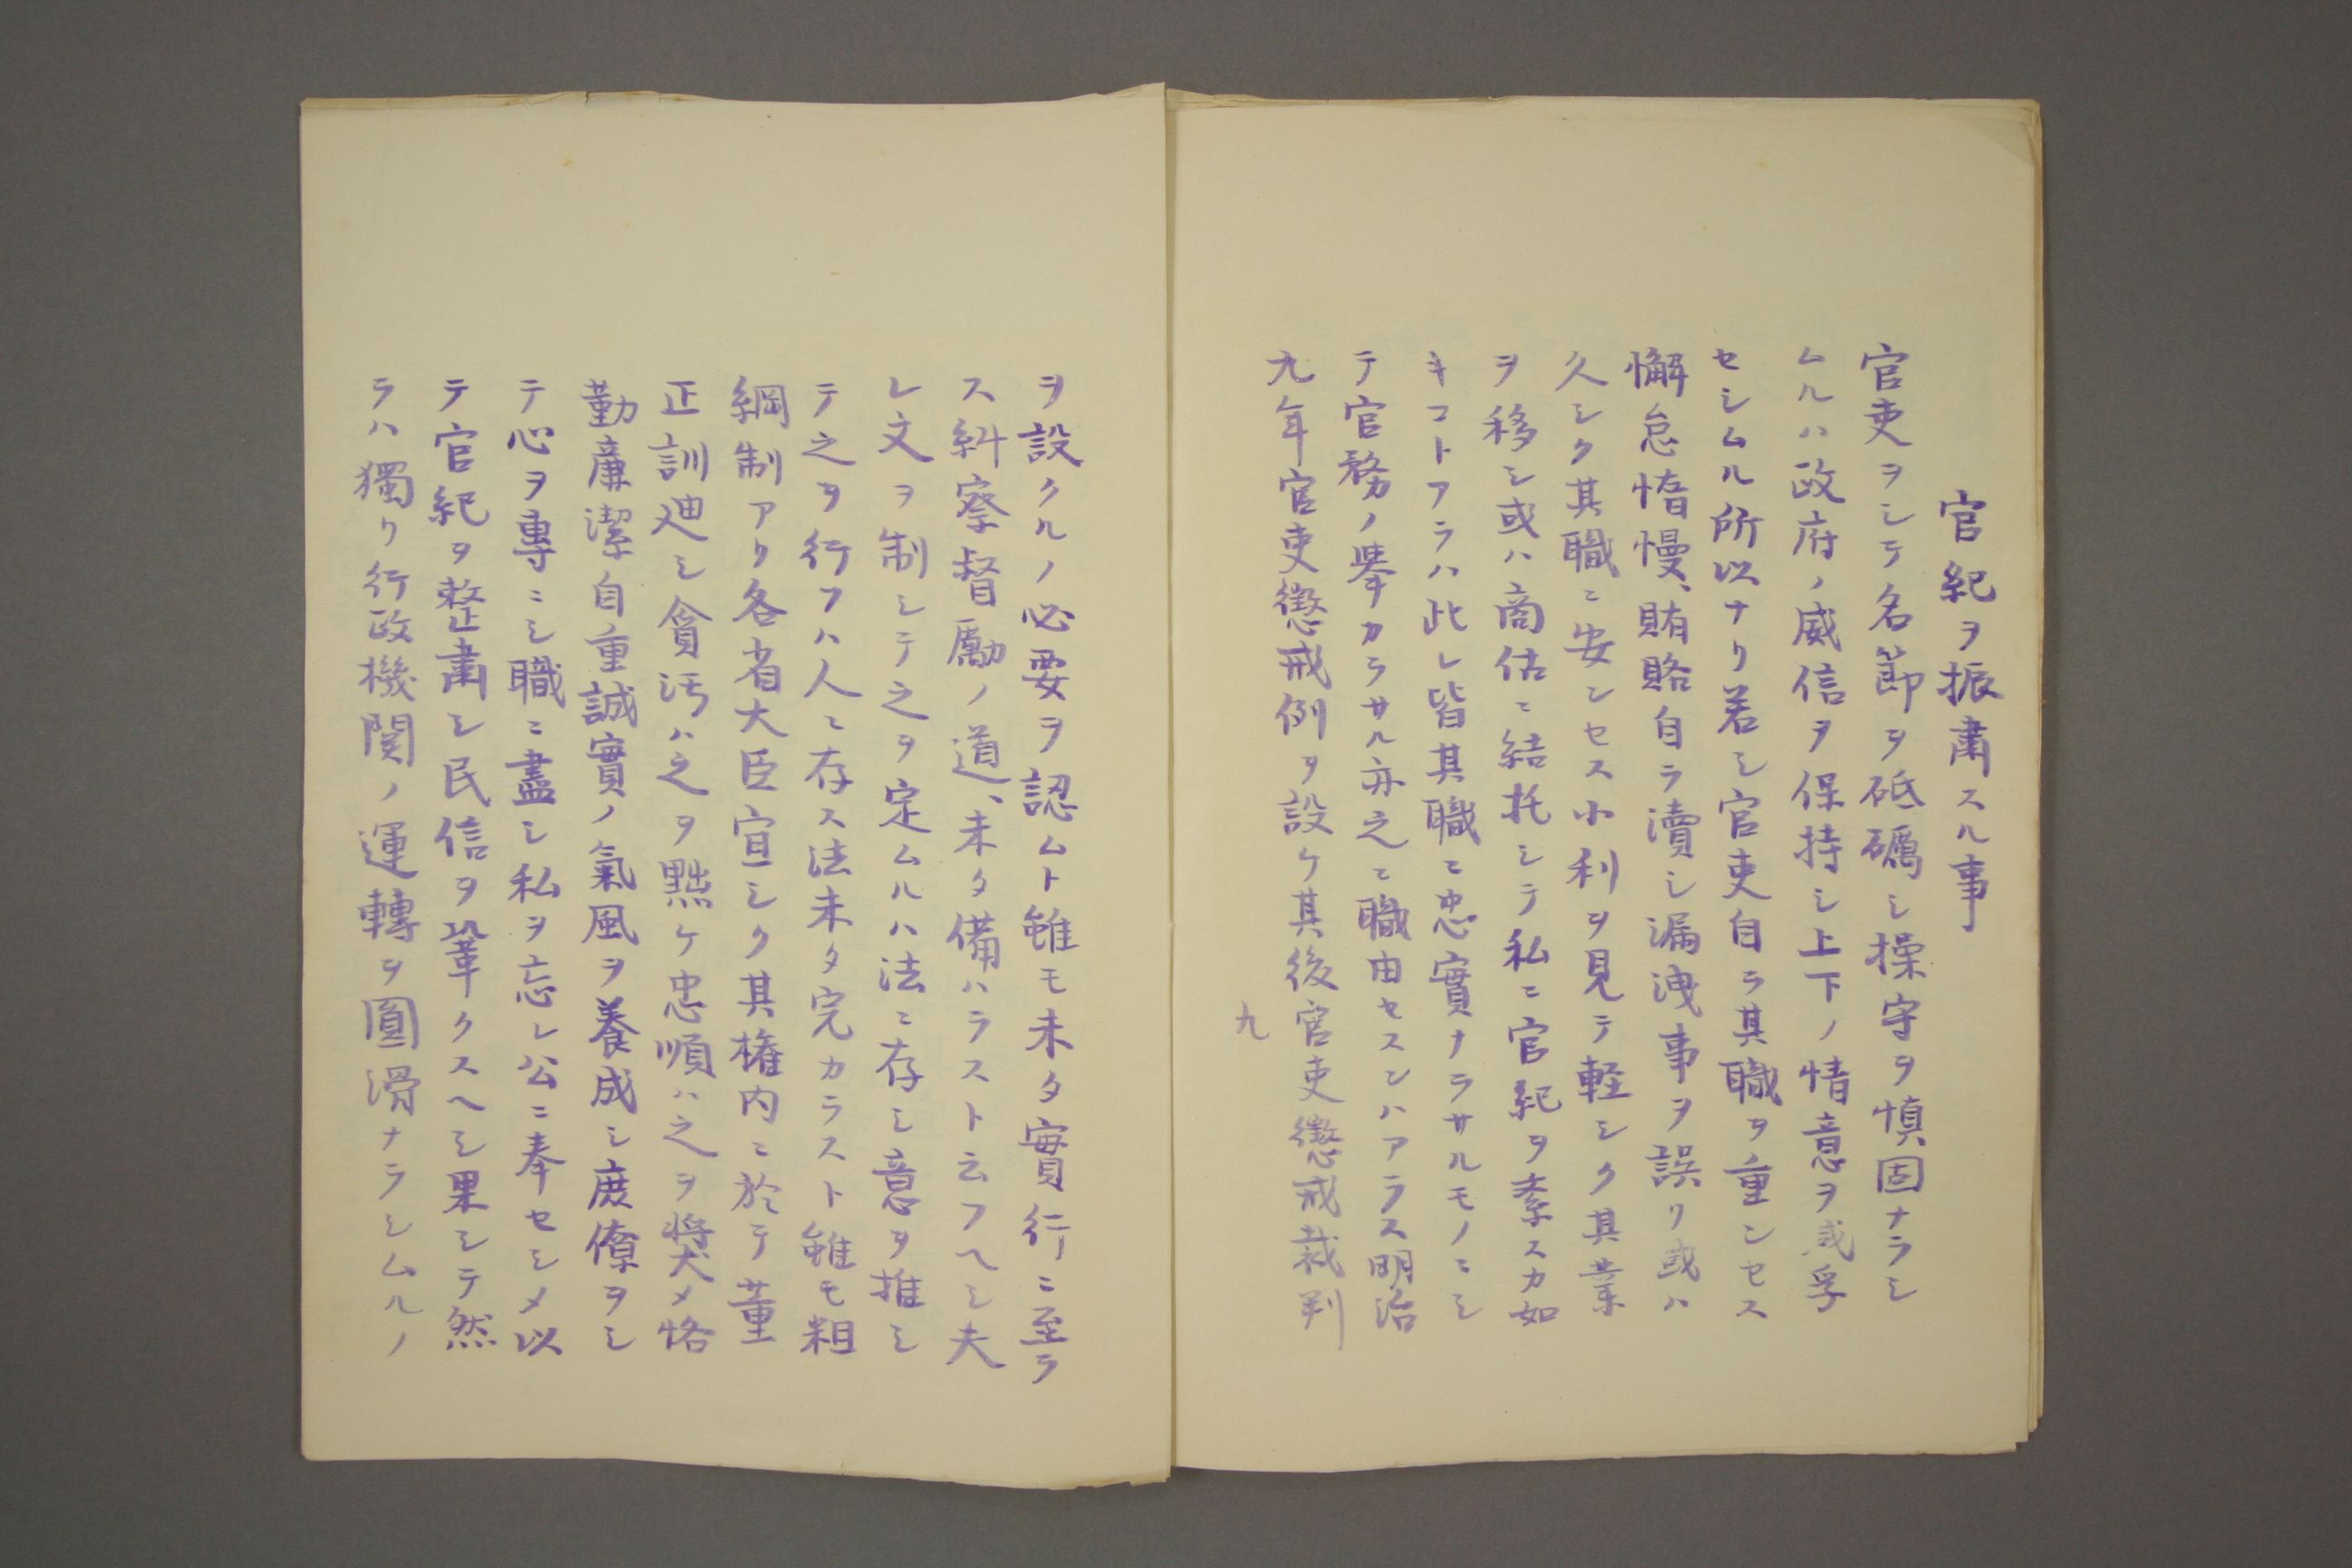 官紀ヲ振肅スル事
官吏ヲシテ名節ヲ砥礪シ操守ヲ慎固ナラシ
ムルハ政府ノ威信ヲ保持シ上下ノ情意ヲ感孚
セシムル所以ナリ若シ官吏自ラ其職ヲ重ンセス
懈怠惰慢、賄賂自ラ瀆シ漏洩事ヲ誤リ或ハ
久シク其職ニ安ンセス小利ヲ見テ軽シク其業
ヲ移シ或ハ商估ニ結托シテ私ニ官紀ヲ紊スカ如
キコトアラハ此レ皆其職ニ忠實ナラサルモノニシ
テ官務ノ擧カラサル亦之ニ職由セスンハアラス明治
九年官吏懲戒例ヲ設ケ其後官吏懲戒裁判
九
ヲ設クルノ必要ヲ認ムト雖モ未タ實行ニ至ラ
ス糾察督勵ノ道、未タ備ハラスト云フヘシ夫
レ文ヲ制シテ之ヲ定ムルハ法ニ存シ意ヲ推シ
テ之ヲ行フハ人ニ存ス法未タ完カラスト雖モ粗
綱制アリ各省大臣宜シク其権内ニ於テ董
正訓廸シ貪汚ハ之ヲ黜ケ忠順ハ之ヲ奬メ恪
勤廉潔自重誠實ノ氣風ヲ養成シ庶僚ヲシ
テ心ヲ專ニシ職ニ盡シ私ヲ忘レ公ニ奉セシメ以
テ官紀ヲ整肅シ民信ヲ鞏クスヘシ果シテ然
ラハ獨リ行政機関ノ運轉ヲ圓滑ナラシムルノ